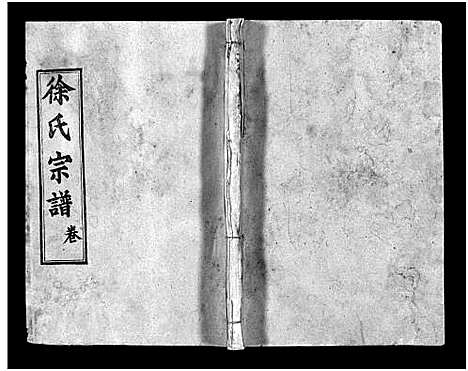 徐氏宗譜卷